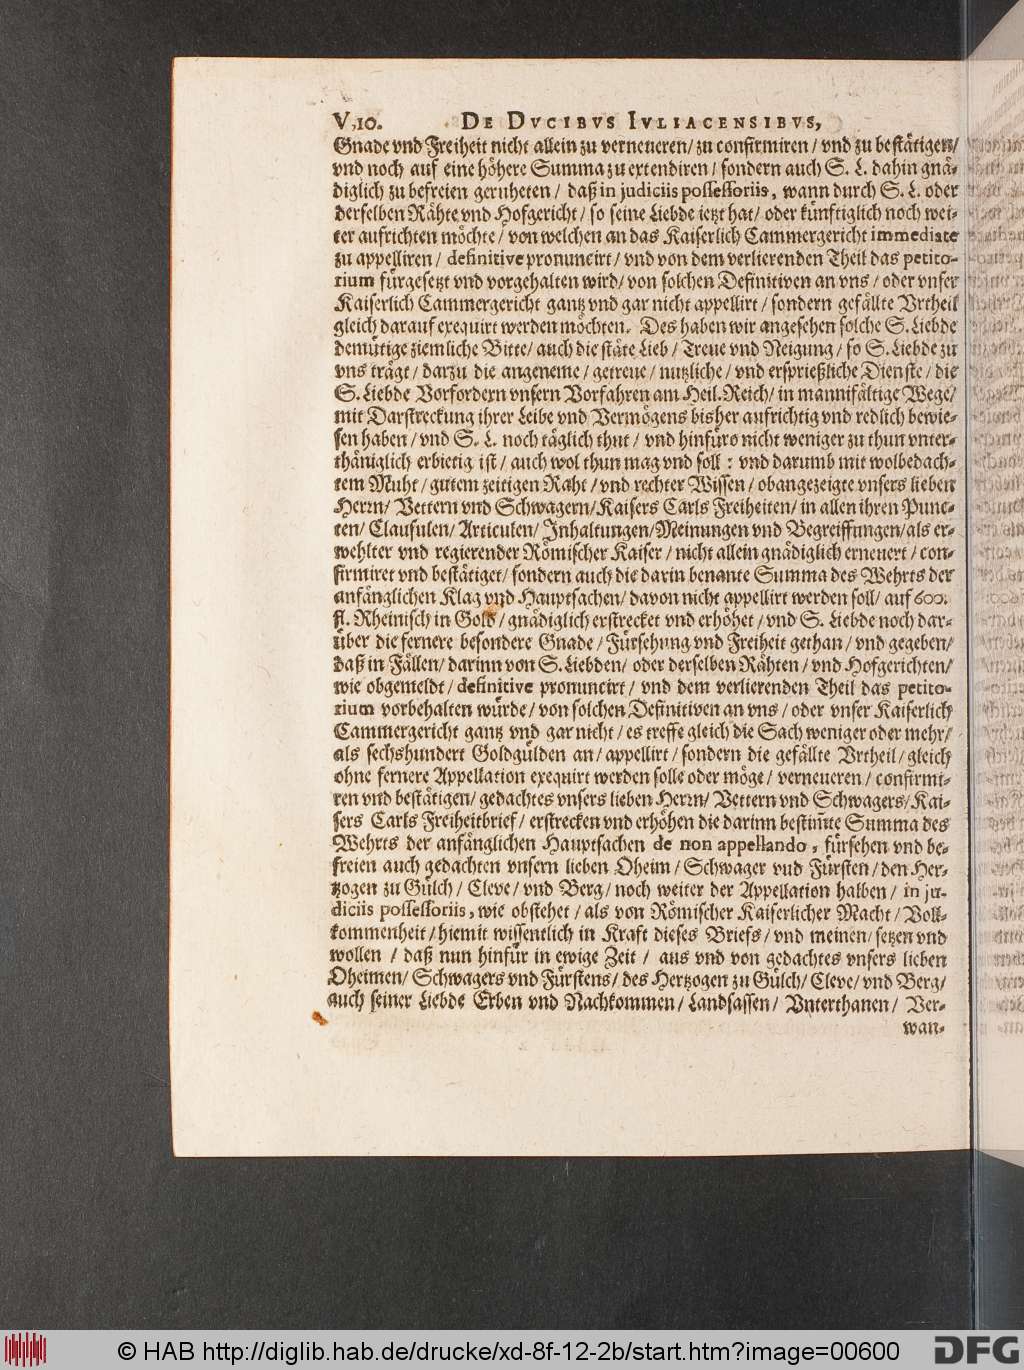 V,10. DE DVCIBVS IVLIACENSIBVS,
Gnade vnd Freiheit nicht allein zu verneueren/ zu confirmiren / vnd zu bestätigen/
vnd noch auf eine höhere Summa zu extendiren / sondern auch S. L. dahin gnä-
diglich zu befreien geruheten / daß in judiciis possessoriis, wann durch S. L. oder
derselben Rähte vnd Hofgericht / so seine Liebde ietzt hat / oder künftiglich noch wei-
ter aufrichten möchte / von welchen an das Kaiserlich Cammergericht immediate
zu appelliren / definitive pronuncirt / vnd von dem verlierenden Theil das petito-
rium fürgesetzt vnd vorgehalten wird / von solchen Definitiven an vns / oder vnser
Kaiserlich Cammergericht gantz vnd gar nicht appellirt / sondern gefällte Vrtheil
gleich darauf exequirt werden möchten. Des haben wir angesehen solche S. Liebde
demütige ziemliche Bitte / auch die stäte Lieb / Treue vnd Neigung / so S. Liebde zu
vns trägt / darzu die angeneme / getreue / nutzliche / vnd ersprießliche Dienste / die
S. Liebde Vorfordern vnsern Vorfahren am Heil. Reich / in mannifältige Wege/
mit Darstreckung ihrer Leibe vnd Vermögens bisher aufrichtig vnd redlich bewie-
sen haben / vnd S. L. noch täglich thut / vnd hinfüro nicht weniger zu thun vnter-
thäniglich erbietig ist / auch wol thun mag vnd soll : vnd darumb mit wolbedach-
tem Muht / gutem zeitigen Raht / vnd rechter Wissen / obangezeigte vnsers lieben
Herrn / Vettern vnd Schwagern / Kaisers Carls Freiheiten / in allen ihren Punc-
ten / Clausulen / Articulen / Inhaltungen / Meinungen vnd Begreiffungen / als er-
wehlter vnd regierender Römischer Kaiser / nicht allein gnädiglich erneuert / con-
firmiret vnd bestätiget / sondern auch die darin benante Summa des Wehrts der
anfänglichen Klag vnd Hauptsachen / davon nicht appellirt werden soll / auf 600.
fl. Rheinisch in Gold / gnädiglich erstrecket vnd erhöhet / vnd S. Liebde noch dar-
über die fernere besondere Gnade / Fürsehung vnd Freiheit gethan / vnd gegeben/
daß in Fällen / darinn von S. Liebden / oder derselben Rähten / vnd Hofgerichten/
wie obgemeldt / definitive pronuncirt / vnd dem verlierenden Theil das petito-
rium vorbehalten würde / von solchen Definitiven an vns / oder vnser Kaiserlich
Cammergericht gantz vnd gar nicht / es treffe gleich die Sach weniger oder mehr/
als sechshundert Goldgülden an / appellirt / sondern die gefällte Vrtheil / gleich
ohne fernere Appellation exequirt werden solle oder möge / verneueren / confirmi-
ren vnd bestätigen / gedachtes vnsers lieben Herrn / Vettern vnd Schwagers / Kai-
sers Carls Freiheitbrief / erstrecken vnd erhöhen die darinn bestim̃te Summa des
Wehrts der anfänglichen Hauptsachen de non appellando, fürsehen vnd be-
freien auch gedachten vnsern lieben Oheim / Schwager vnd Fürsten / den Her-
tzogen zu Gülch / Cleve / vnd Berg / noch weiter der Appellation halben / in ju-
diciis possessoriis, wie obstehet / als von Römischer Kaiserlicher Macht / Voll-
kommenheit / hiemit wissentlich in Kraft dieses Briefs / vnd meinen / setzen vnd
wollen / daß nun hinfür in ewige Zeit / aus vnd von gedachtes vnsers lieben
Oheimen / Schwagers vnd Fürstens / des Hertzogen zu Gülch / Cleve / vnd Berg/
auch seiner Liebde Erben vnd Nachkommen / Landsassen / Vnterthanen / Ver-
wan-
© HAB http://diglib.hab.de/drucke/xd-8f-12-2b/start.htm?image=00600
DFG